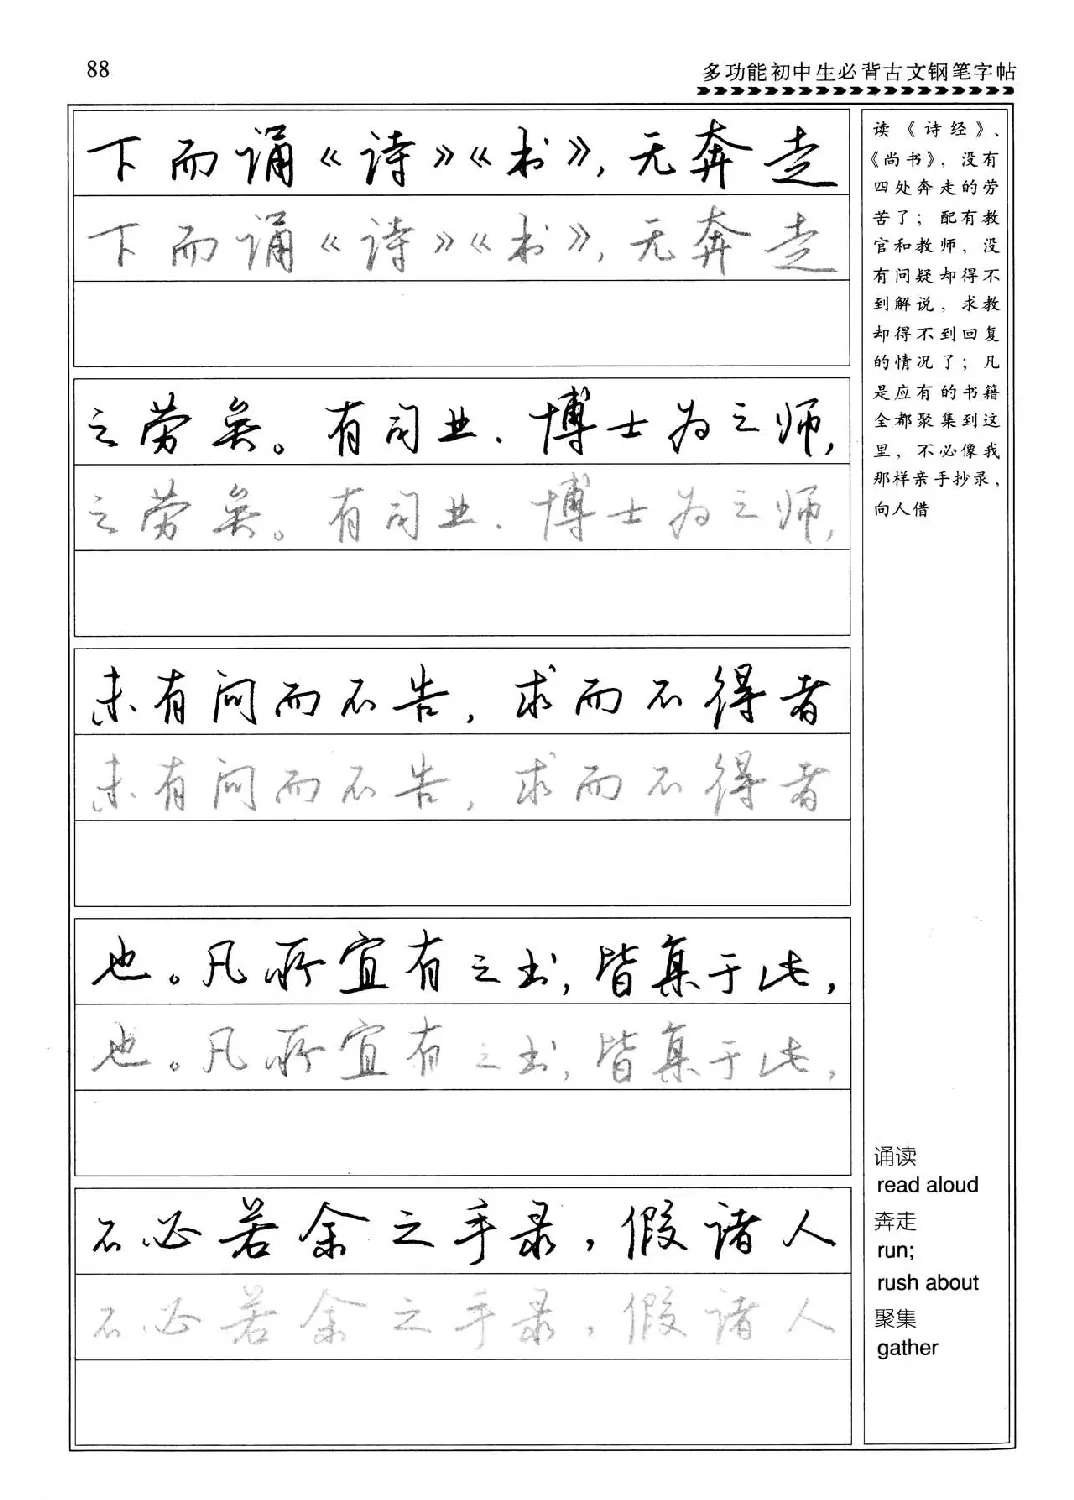 88
多功能初中生必背古文钢笔字帖
下而诵《诗》《书》,无奔走
下而诵《诗》《书》,无奔走
之劳矣。有司业、博士为之师,
之劳矣。有司业、博士为之师,
未有问而不告,求而不得者
未有问而不告,求而不得者
也。凡所宜有之书,皆集于此,
也。凡所宜有之书,皆集于此,
不必若余之手录,假诸人
不必若余之手录,假诸人
读《诗经》、
《尚书》,没有
四处奔走的劳
苦了;配有教
官和教师,没
有问疑却得不
到解说,求教
却得不到回复
的情况了;凡
是应有的书籍
全都聚集到这
里,不必像我
那样亲手抄录,
向人借
诵读
read aloud
奔走
run;
rush about
聚集
gather